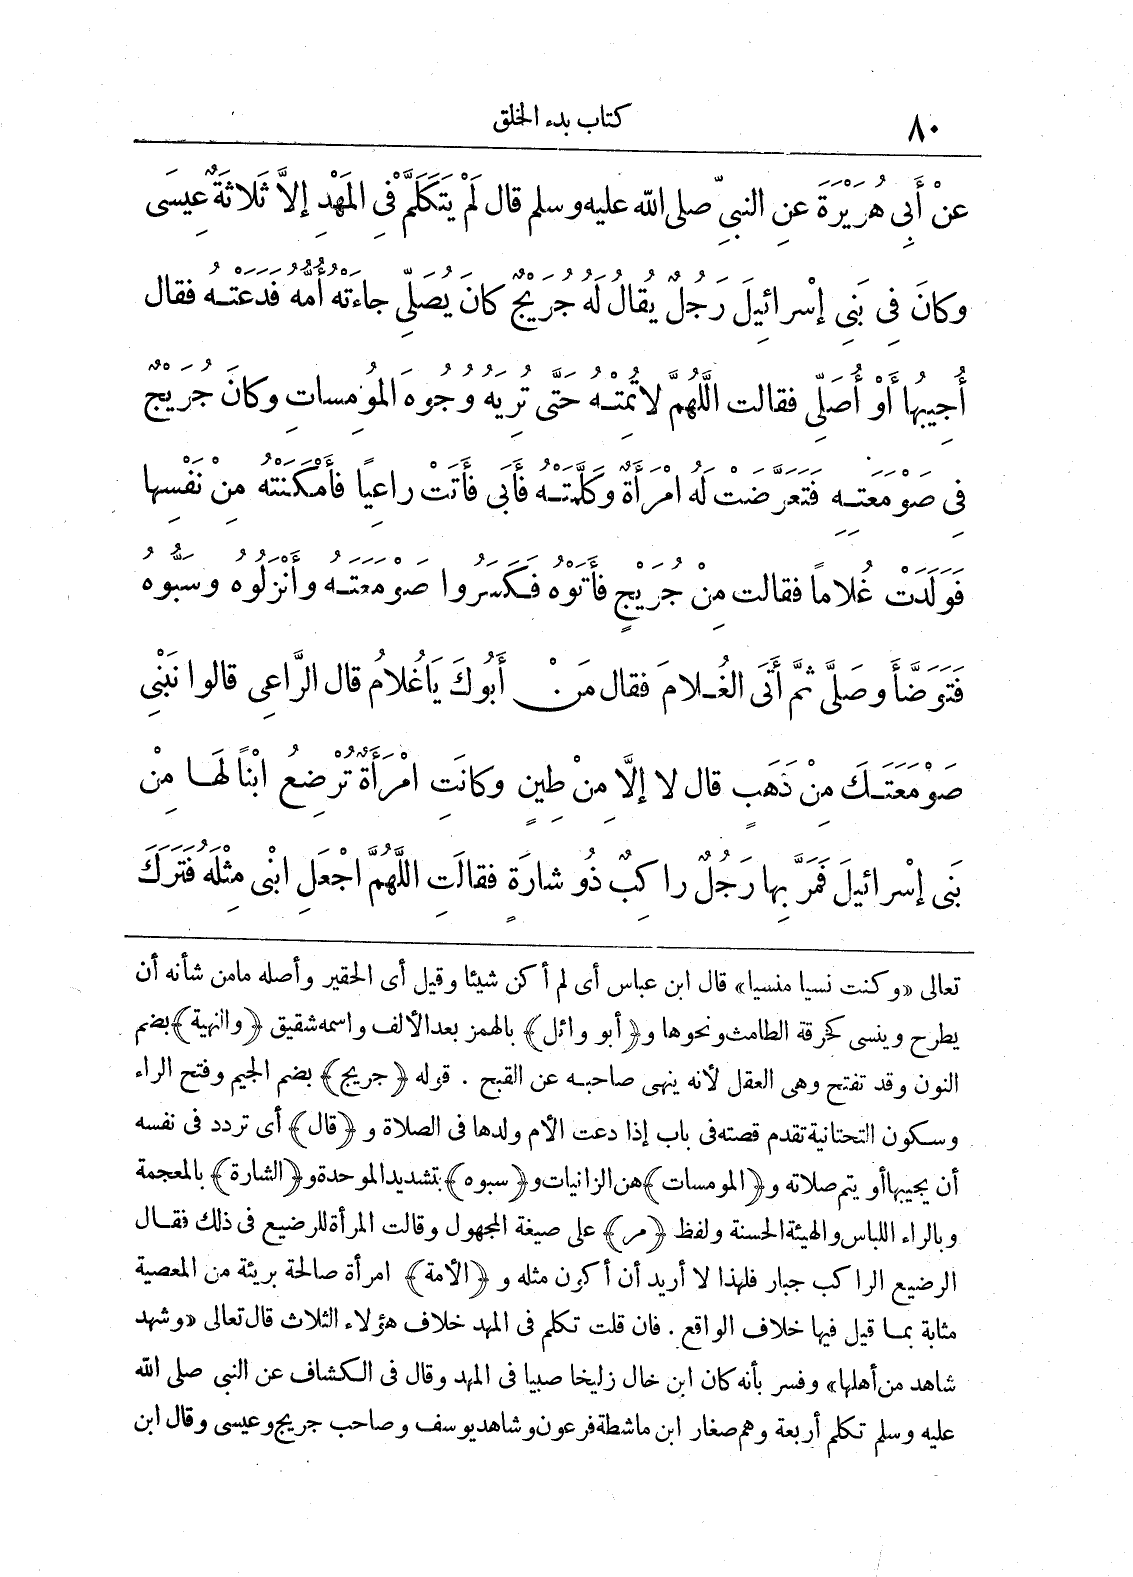 ٨٠
كتاب بدء الخلق
عنْ أَبِى هُرَيْرَةَ عنِ النبىِّ صلى الله عليه وسلم قال لَمْ يَتَكَلَّمْ فِى المَهْدِ إلاَّ ثَلاثَةٌ عِيسَى
وكانَ فِى بَنِى إسْرائِيلَ رَجُلٌ يقالُ لَهُ جُرَيْجٌ كانَ يُصَلِّى جاءَتْهُ أُمُّهُ فَدَعَتْهُ فقال
أُجِيبُها أَوْ أُصَلِّى فقالت اللَّهُمَّ لا تُمِتْهُ حَتَّى تُرِيَهُ وجُوهَ المُومِساتِ وكانَ جُرَيْجٌ
فى صَوْمَعَتِهِ فَتَعَرَّضَتْ لَهُ امْرَأَةٌ وكَلَّمَتْهُ فأَبَى فأَتَتْ راعِيًا فأَمْكَنَتْهُ مِنْ نَفْسِها
فَوَلَدَتْ غُلاماً فقالت مِنْ جُرَيْجٍ فأَتَوْهُ فكَسَرُوا صَوْمَعَتَهُ وأَنْزَلُوهُ وسَبُّوهُ
فَتَوَضَّأَ وصَلَّى ثمَّ أَتَى الغُلامَ فقال مَنْ أَبُوكَ يَا غُلامُ قال الرَّاعِى قالوا نَبْنِى
صَوْمَعَتَكَ مِنْ ذَهَبٍ قال لا إلاَّ مِنْ طِينٍ وكانَتِ امْرَأَةٌ تُرْضِعُ ابْنًا لَها مِنْ
بَنِى إسْرائِيلَ فَمَرَّ بِها رَجُلٌ راكِبٌ ذُو شارَةٍ فقالَتِ اللَّهُمَّ اجْعَلِ ابْنِى مِثْلَهُ فَتَرَكَ
تعالى «وكنت نسيا منسيا» قال ابن عباس أى لم أكن شيئا وقيل أى الحقير وأصله مامن شأنه أن
يطرح وينسى كخرقة الطامث ونحوها و﴿أبو وائل﴾ بالهمز بعد الألف واسمه شقيق ﴿والنهية﴾ بضم
النون وقد تفتح وهى العقل لأنه ينهى صاحبه عن القبح . قوله ﴿جريج﴾ بضم الجيم وفتح الراء
وسكون التحتانية تقدم قصته فى باب إذا دعت الأم ولدها فى الصلاة و ﴿قال﴾ أى تردد فى نفسه
أن يجيبها أو يتم صلاته و﴿المومسات﴾ هن الزانيات و﴿سبوه﴾ بتشديد الموحدة و﴿الشارة﴾ بالمعجمة
وبالراء اللباس والهيئة الحسنة ولفظ ﴿مر﴾ على صيغة المجهول وقالت المرأة للرضيع فى ذلك فقال
الرضيع الراكب جبار فلهذا لا أريد أن أكون مثله و ﴿الأمة﴾ امرأة صالحة بريئة من المعصية
مثابة بما قيل فيها خلاف الواقع . فان قلت تكلم فى المهد خلاف هؤلاء الثلاث قال تعالى «وشهد
شاهد من أهلها» وفسر بأنه كان ابن خال زليخا صبيا فى المهد وقال فى الكشاف عن النبى صلى الله
عليه وسلم تكلم أربعة وهم صغار ابن ماشطة فرعون وشاهد يوسف وصاحب جريج وعيسى وقال ابن